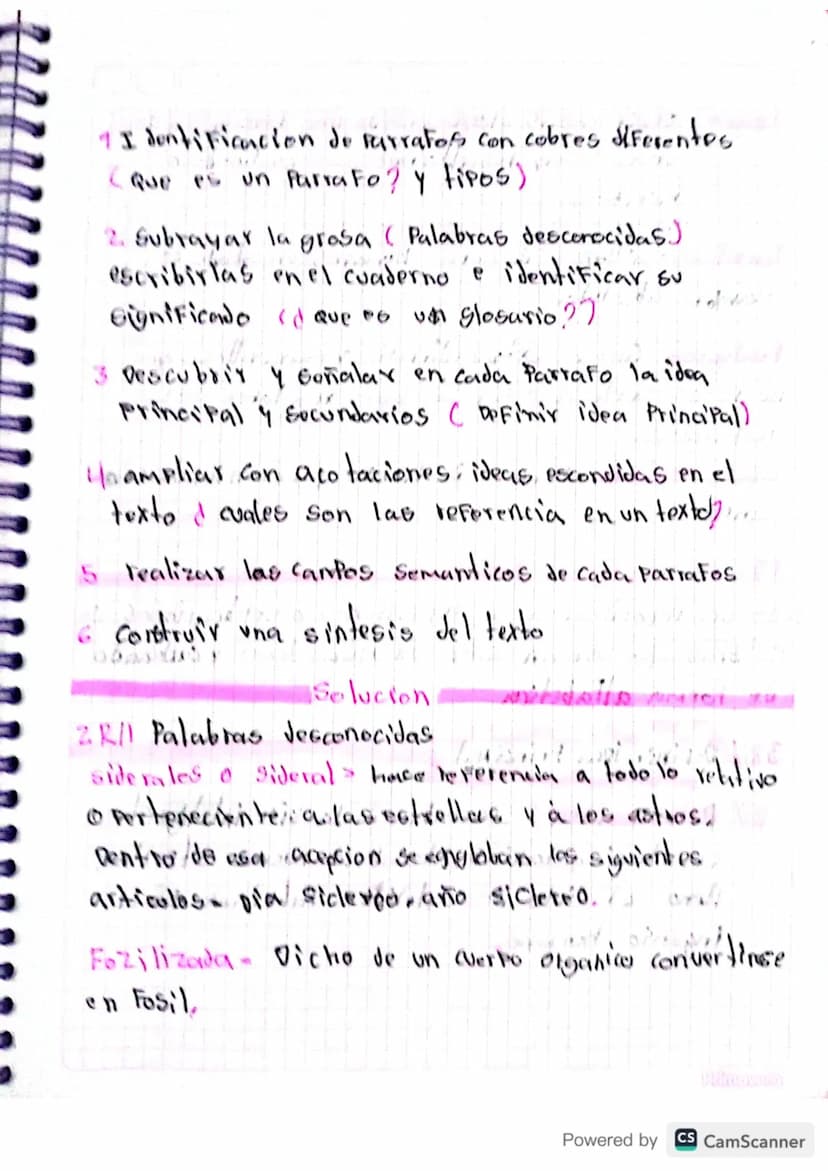 1 Identificacion de Parrafos con cobres diferentes
(Que es un Parrafo? y tipos)
2. Subrayar la grosa (Palabras desconocidas)
escribirlas en el cuaderno e identificar su
significado (¿ que es un glosario??)
3 Descubrir y señalar en cada Parrafo la idea
Principal y secundarios ( Definir idea Principal)
4. ampliar con acotaciones, ideas escondidas en el
texto ¿ cuales son las referencia en un texto?
5 realizar las campos semanticos de cada parrafos
6 Construir una sintesis del texto
Solucion
2 R// Palabras desconocidas
siderales o sideral > hace referencia a todo lo relativo
o perteneciente a las estrellas y a los astros.
Dentro de esa acepcion se engloban los siguientes
articulos - Dia, año
Fozilizada - Dicho de un cuerpo organico convertirse
en Fosil.
Powered by CS CamScanner